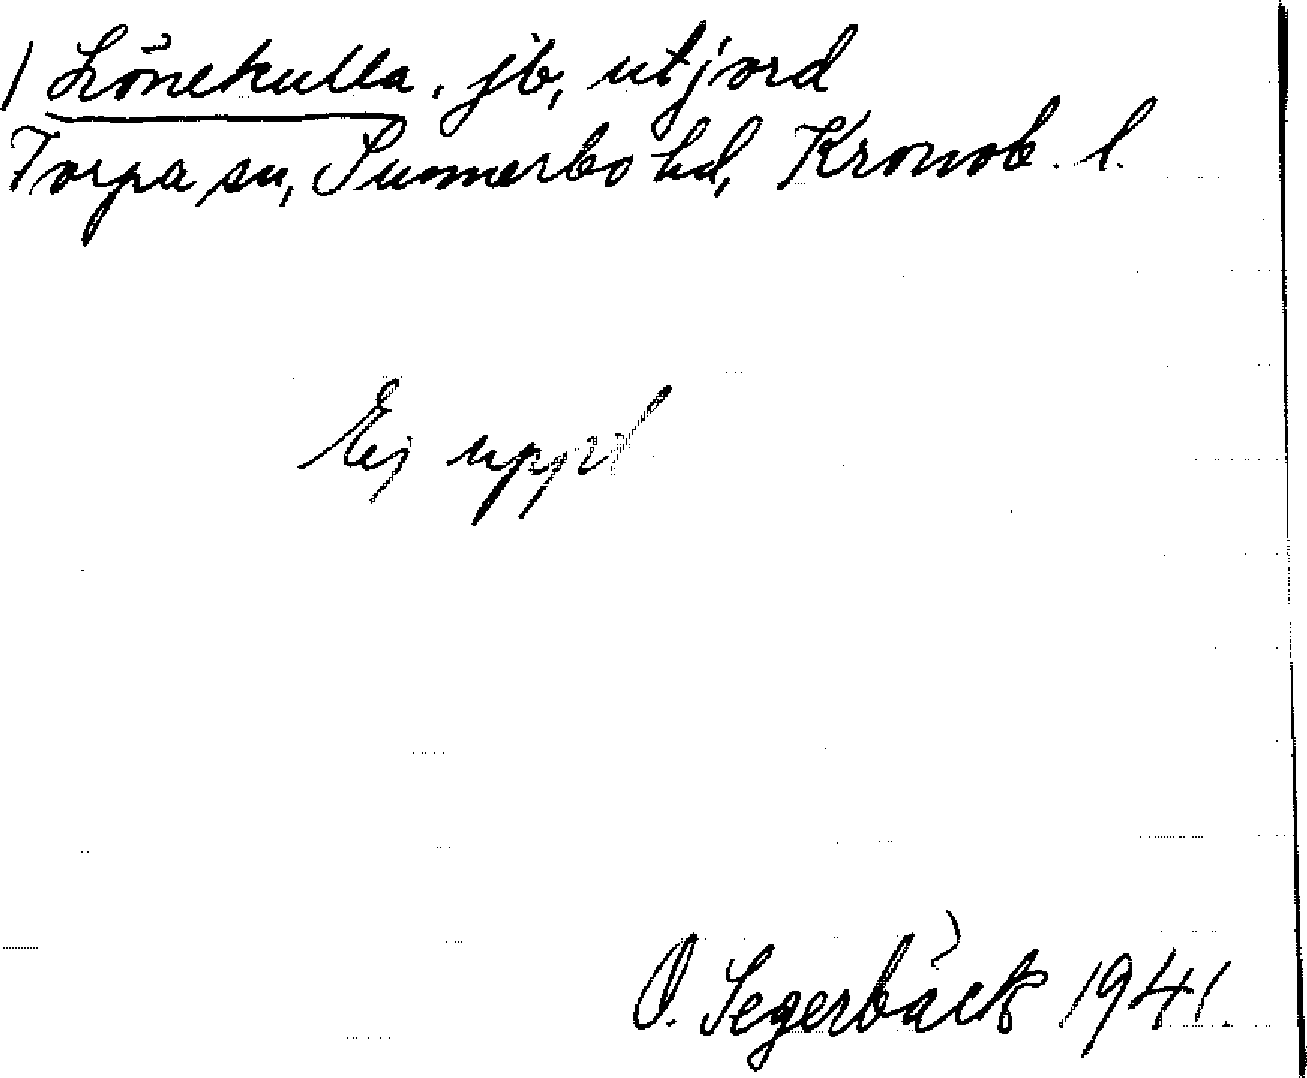 / Lönekulla, jb, utjord
Torpa sn, Sunnerbo hd, Kronob. l.
Ej uppt
O. Segerbäck 1941.